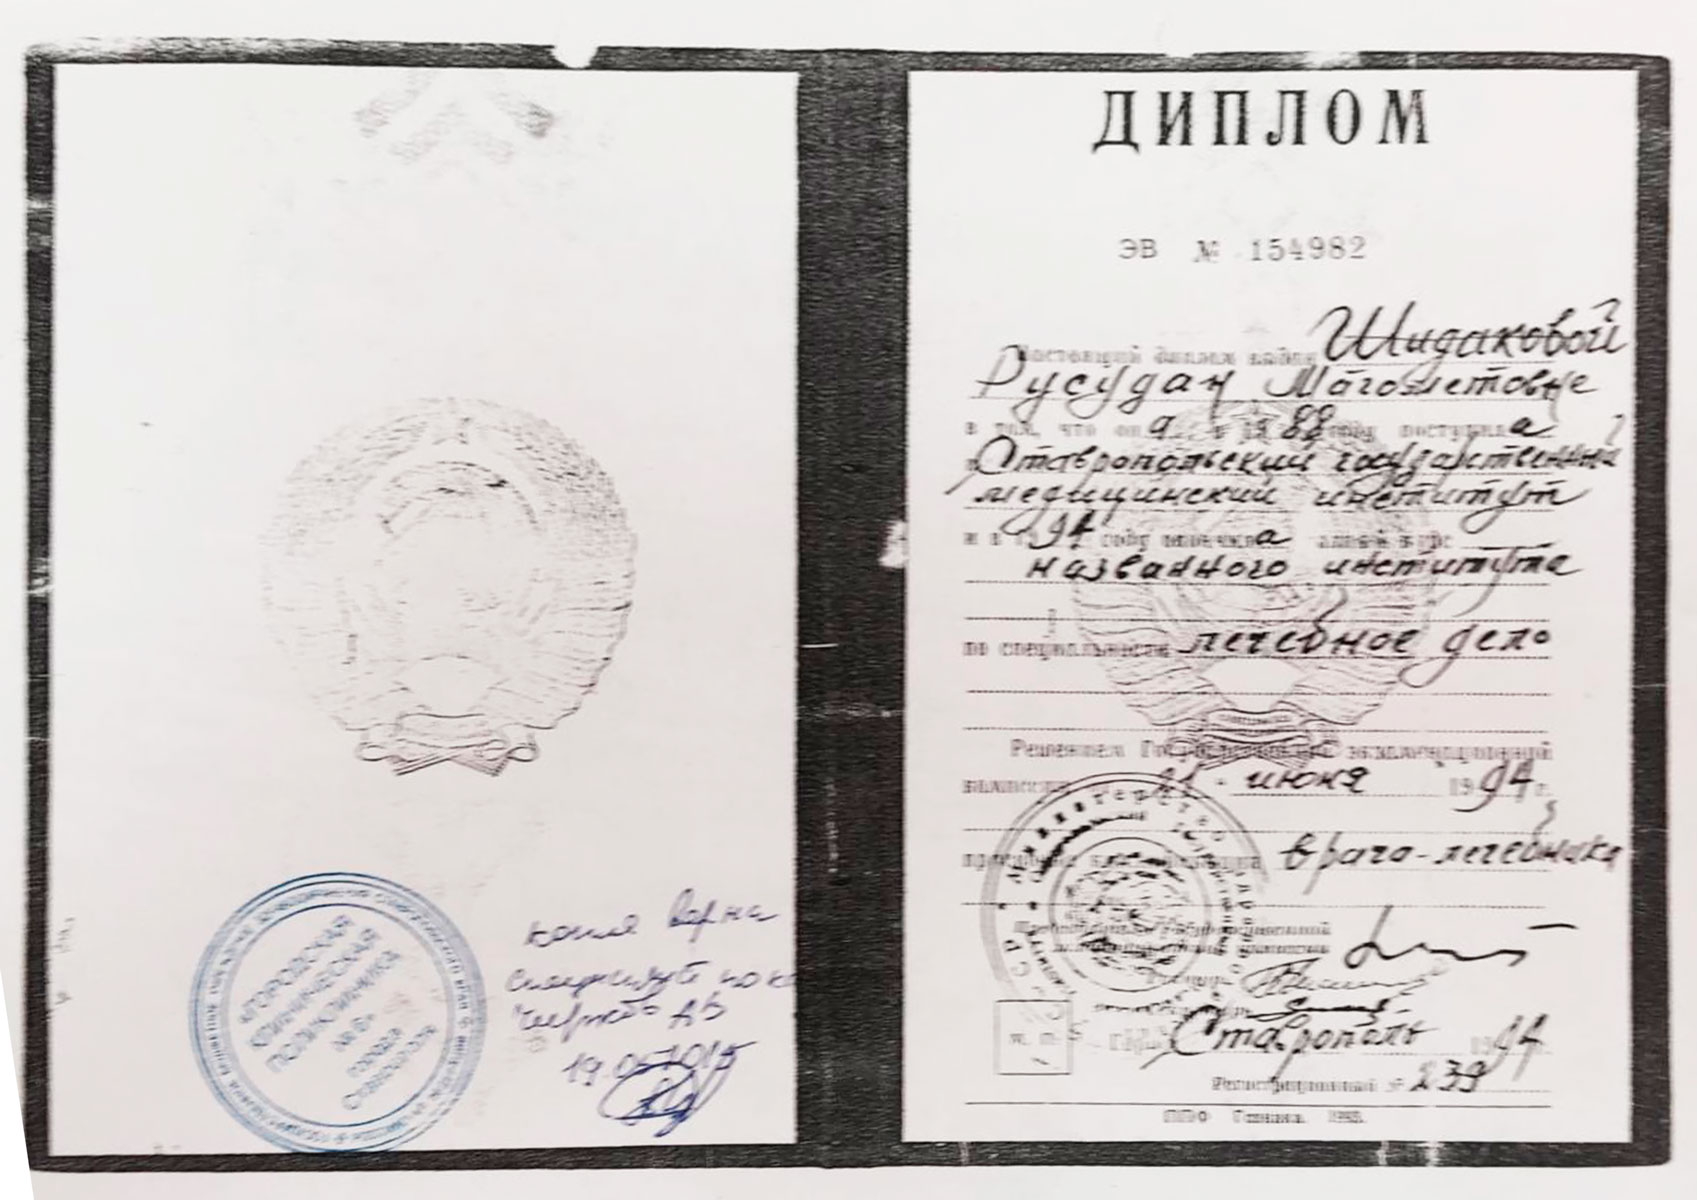 «ГОРОДСКАЯ
КЛИНИЧЕСКАЯ
ПОЛИКЛИНИКА
№ 6»
города
копия верна
специалист по к
19.05.2015
ДИПЛОМ
ЭВ № 154982
Настоящий диплом выдан Шидаковой
Русудан Магометовне
в том, что она в 1988 году поступила
в Ставропольский государственный
медицинский институт
и в 1994 году окончила полный курс
названного института
по специальности лечебное дело
Решением Государственной экзаменационной
комиссии 21 июня 1994 г.
присвоена квалификация врача-лечебника
Председатель Государственной
экзаменационной комиссии
Ректор
М. П. Город Ставрополь 1994
Регистрационный № 239
Гознака.